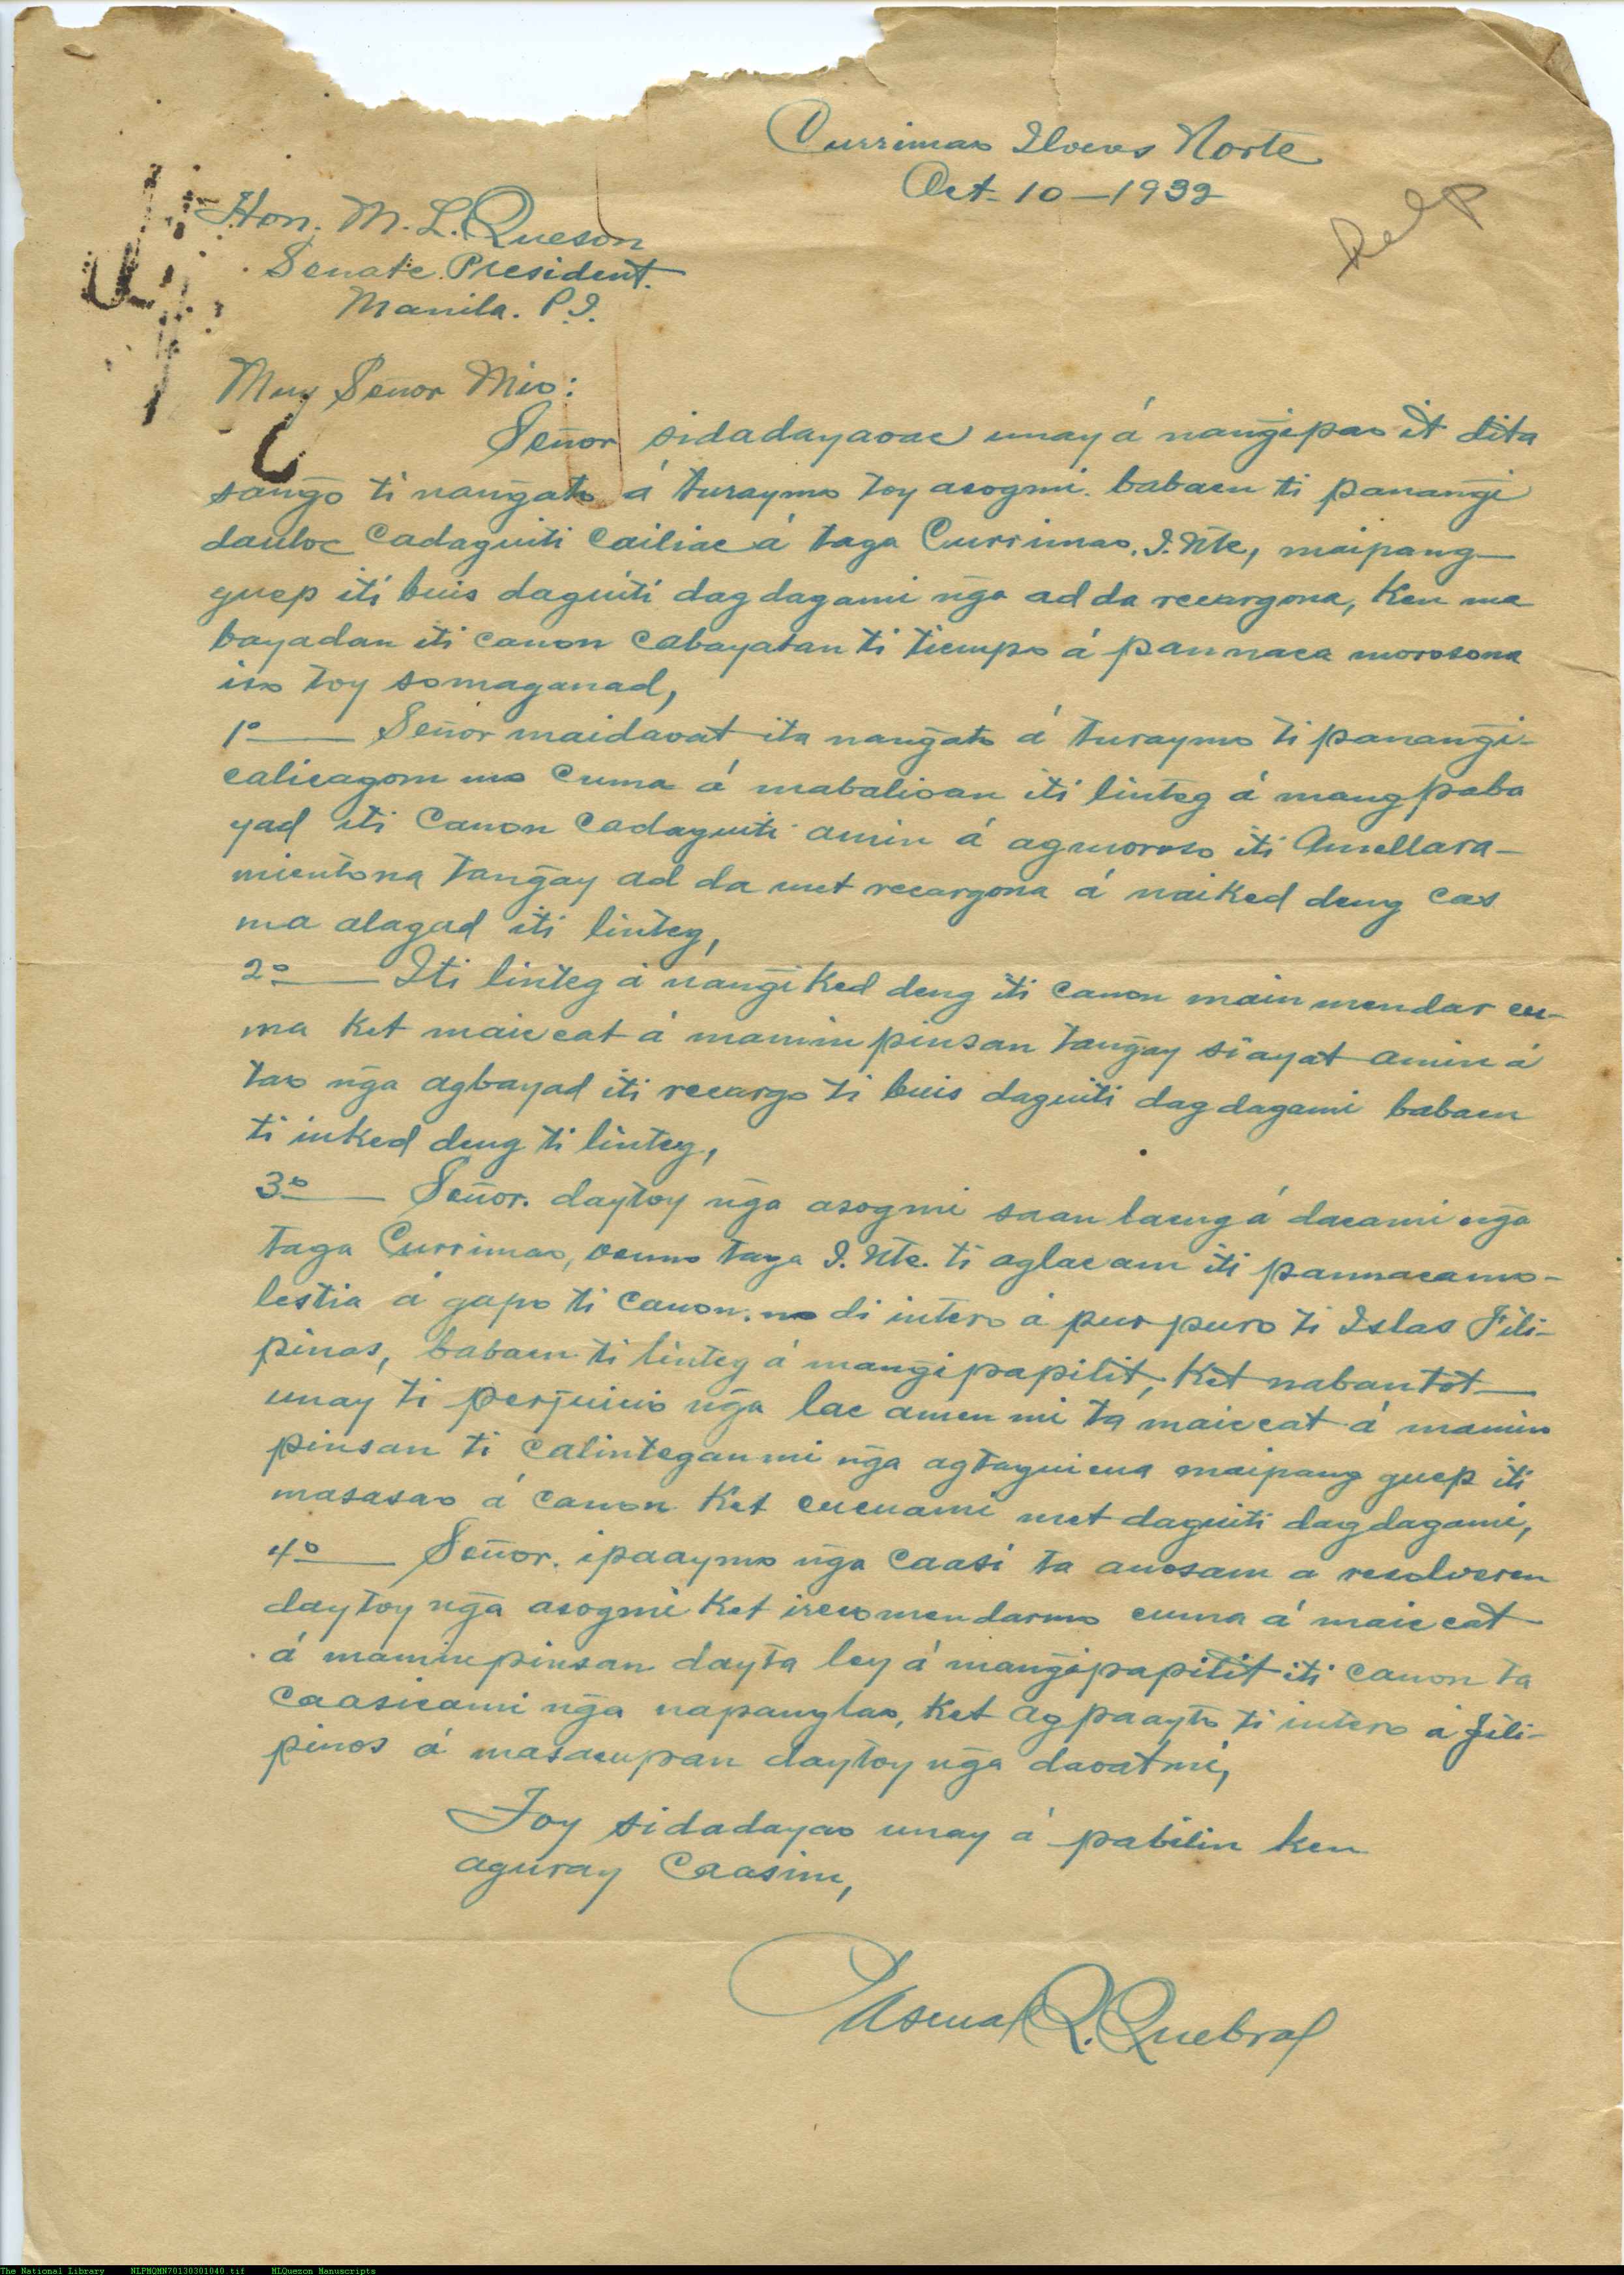 Currimao Ilocos Norte
Oct. 10 — 1932
Help
Hon. M. L. Queson
Senate President.
Manila. P.I.
Muy Señor Mio:
Señor sidadayaoac unay á nangipao it dita
sango ti nangato á turaymo toy asogmi. babaen ti panangi
dauloc cadaguiti cailiac á taga Currimao. I. Nte, maipang—
guep iti buis daguiti dagdagami nga ad da recargona, ken ma
bayadan iti canon cabayatan ti tiempo á pannaca morosona
iso toy somaganad,
1º— Señor maidaoat ita nangato á turaymo ti panangi-
calicagom mo cuma á mabalioan iti linteg á mangpaba
yad iti canon cadaguiti amin á agmoroso iti Amellara—
mientona tangay ad da met recargona á naiked deng cas
ma alagad iti linteg,
2º— Iti linteg á nangiked deng iti canon main mendar cu-
ma ket maiccat á maminpinsan tangay siayat amin á
tao nga agbayad iti recargo ti buis daguiti dagdagami babaen
ti inked deng ti linteg,
3º— Señor. daytoy nga asogmi saan laeng á dacami nga
taga Currimao, oenno taga I. Nte. ti aglacam iti pannacamo-
lestia á gapo ti canon. no di intero á purpuro ti Islas Fili-
pinas, babaen ti linteg á mangipapilit, ket nabantot—
unay ti perjuicio nga lac amen mi ta maiccat á mamin
pinsan ti calintegan mi nga agtaguicua maipang guep iti
masasao á canon ket cucuami met daguiti dagdagami,
4º— Señor. ipaaymo nga caasi ta anosam a resolveren
daytoy nga asogmi ket irecomendarmo cuma á maiccat
á maminpinsan dayta ley á mangipapilit iti canon ta
caasicami nga napanglao, ket agpaayto ti intero á Fili-
pinos á masacupan daytoy nga daoatmi,
Toy sidadayao unay á pabilin ken
aguray caasim,
Q. Quebral
The National Library NLPMQMN70130301040.tif MLQuezon Manuscripts